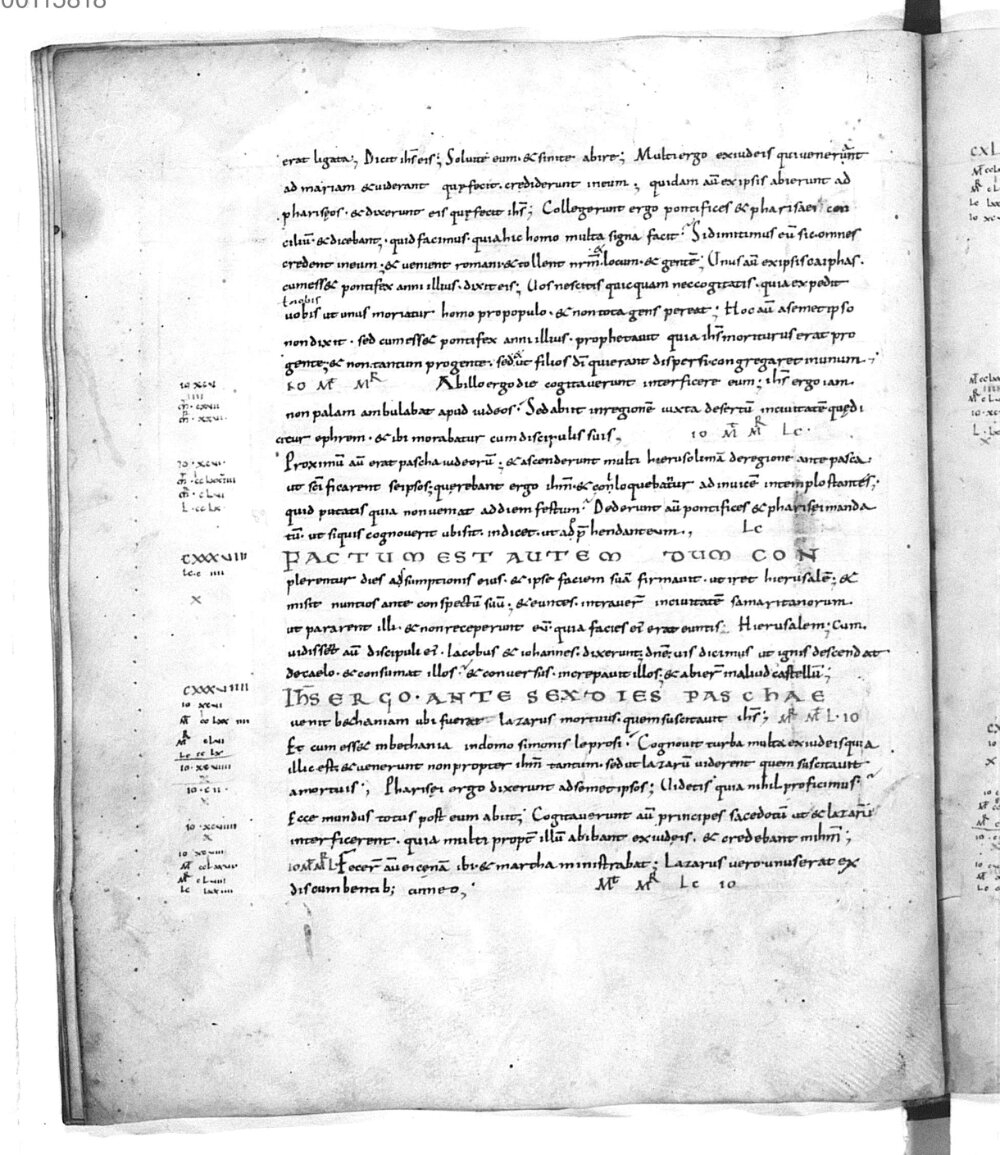 00115818
erat ligata; Dicit ihs eis; Soluite eum & sinite abire; Multi ergo ex iudeis qui venerunt
ad mariam & uiderant quę fecit. crediderunt in eum; quidam aū ex ipsis abierunt ad
pharisęos. & dixerunt eis quę fecit ihs; Collegerunt ergo pontifices & pharisaei con
ciliū. & dicebant; quid facimus. quia hic homo multa signa facit; Si dimittimus eū sic. omnes
credent in eum; & venient romani & tollent nrm̄ & locum. & gentē; Unus aū ex ipsis caiphas.
cum ess& pontifex anni illius. dixit eis; Uos nescitis quicquam nec cogitatis. quia expedit
ł nobis
uobis ut unus moriatur homo pro populo. & non tota gens pereat; Hoc aū a semet ipso
non dixit. sed cum ess& pontifex anni illius. prophetauit quia ihs moriturus erat pro
gente; & non tantum pro gente. sed & ut filios dī qui erant dispersi. congregaret in unum;
IO MT MR Ab illo ergo die cogitauerunt interficere eum; ihs ergo iam
non palam ambulabat apud iudeos. Sed abiit in regionē iuxta desertū in ciuitatē quę di
citur ephrem. & ibi morabatur cum discipulis suis, IO MT MR LC.
Proximū aū erat pascha iudeorū; & ascenderunt multi hierusolimā de regione ante pasca.
ut sc̄ificarent se ipsos; querebant ergo ihm̄. & conloquebantur ad inuicē in templo stantes;
quid putatis quia non veniat ad diem festum; Dederant aū pontifices & pharisei manda
tū. ut si quis cognouerit ubi sit. indicet. ut adp̄hendant eum, LC
CXXXVIII FACTUM EST AUTEM DUM CON
plerentur dies adsumptionis eius. & ipse faciem suā firmauit. ut iret hierusalē; &
misit nuntios ante conspectū suū; & euntes. intrauer̄ in ciuitatē samaritanorum.
ut pararent illi. & non receperunt eū. quia facies ei' erat euntis Hierusalem; Cum
uidissent aū discipuli ei' Iacobus & iohannes. dixerunt; dn̄e. uis dicimus ut ignis descendat
de caelo. & consumat illos; & conuersus. increpauit illos; & abier̄ in aliud castellū;
CXXXVIIII IHS ERGO. ANTE SEX DIES PASCHAE
uenit bethaniam ubi fuerat lazarus mortuus. quem suscitauit ihs; MR MT L. IO
Et cum ess& in bethania in domo simonis leprosi; Cognouit turba multa ex iudeis quia
illic est; & venerunt non propter ihm̄ tantum. sed ut lazarū uiderent quem suscitauit
a mortuis; Pharisei ergo dixerunt ad semet ipsos; Uidetis quia nihil proficimus;
Ecce mundus totus post eum abiit; Cogitauerunt aū principes sacedotū ut & lazarū
interficerent. quia multi propt̄ illū abibant ex iudeis. & credebant in ihm̄;
IO MT MR L Fecer̄ aū ei cenā ibi. & martha ministrabat; Lazarus uero unus erat ex
discumbentib; cum eo; MT MR LC IO